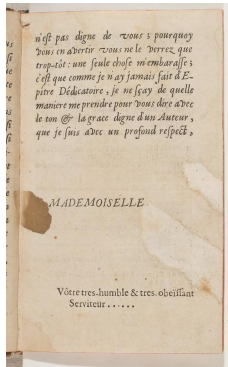 n'est pas digne de vous; pourquoy
vous en avertir vous ne le verrez que
trop-tôt: une seule chose m'embarasse;
c'est que comme je n'ay jamais fait d'E-
pitre Dédicatoire, je ne sçay de quelle
maniere me prendre pour vous dire avec
le ton & la grace digne d'un Auteur,
que je suis avec un profond respect,
MADEMOISELLE
Vôtre tres-humble & tres. obeïssant
Serviteur......